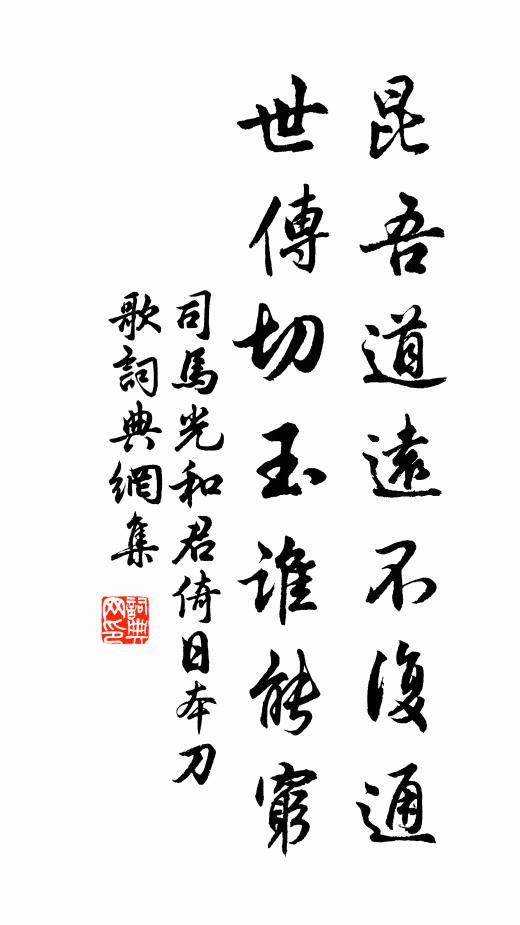 昆吾道遠不復通
世傳切玉誰能窮
司馬光和君倚日本刀
歌詞典網集
詞典
网印